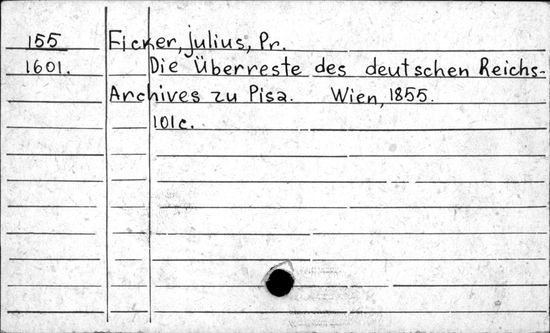 155 Eicker, julius, Pr.
1601. Die Überreste des deutschen Reichs-
Archives zu Pisa. Wien, 1855.
101c.